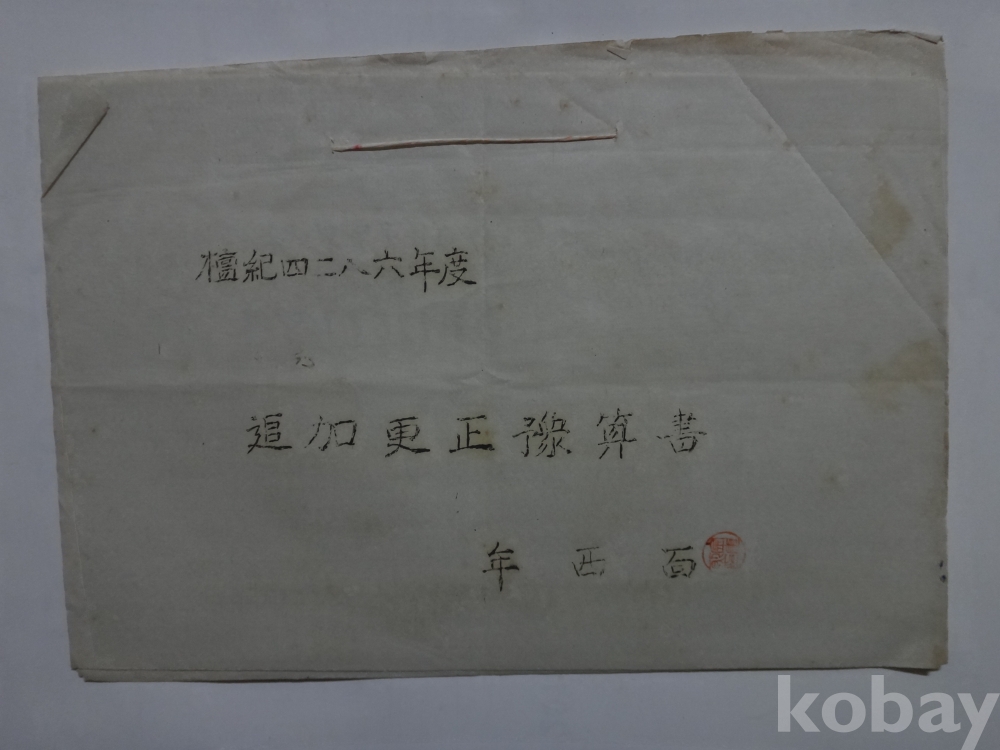 檀紀四二八六年度
追加更正豫算書
年西面
kobay